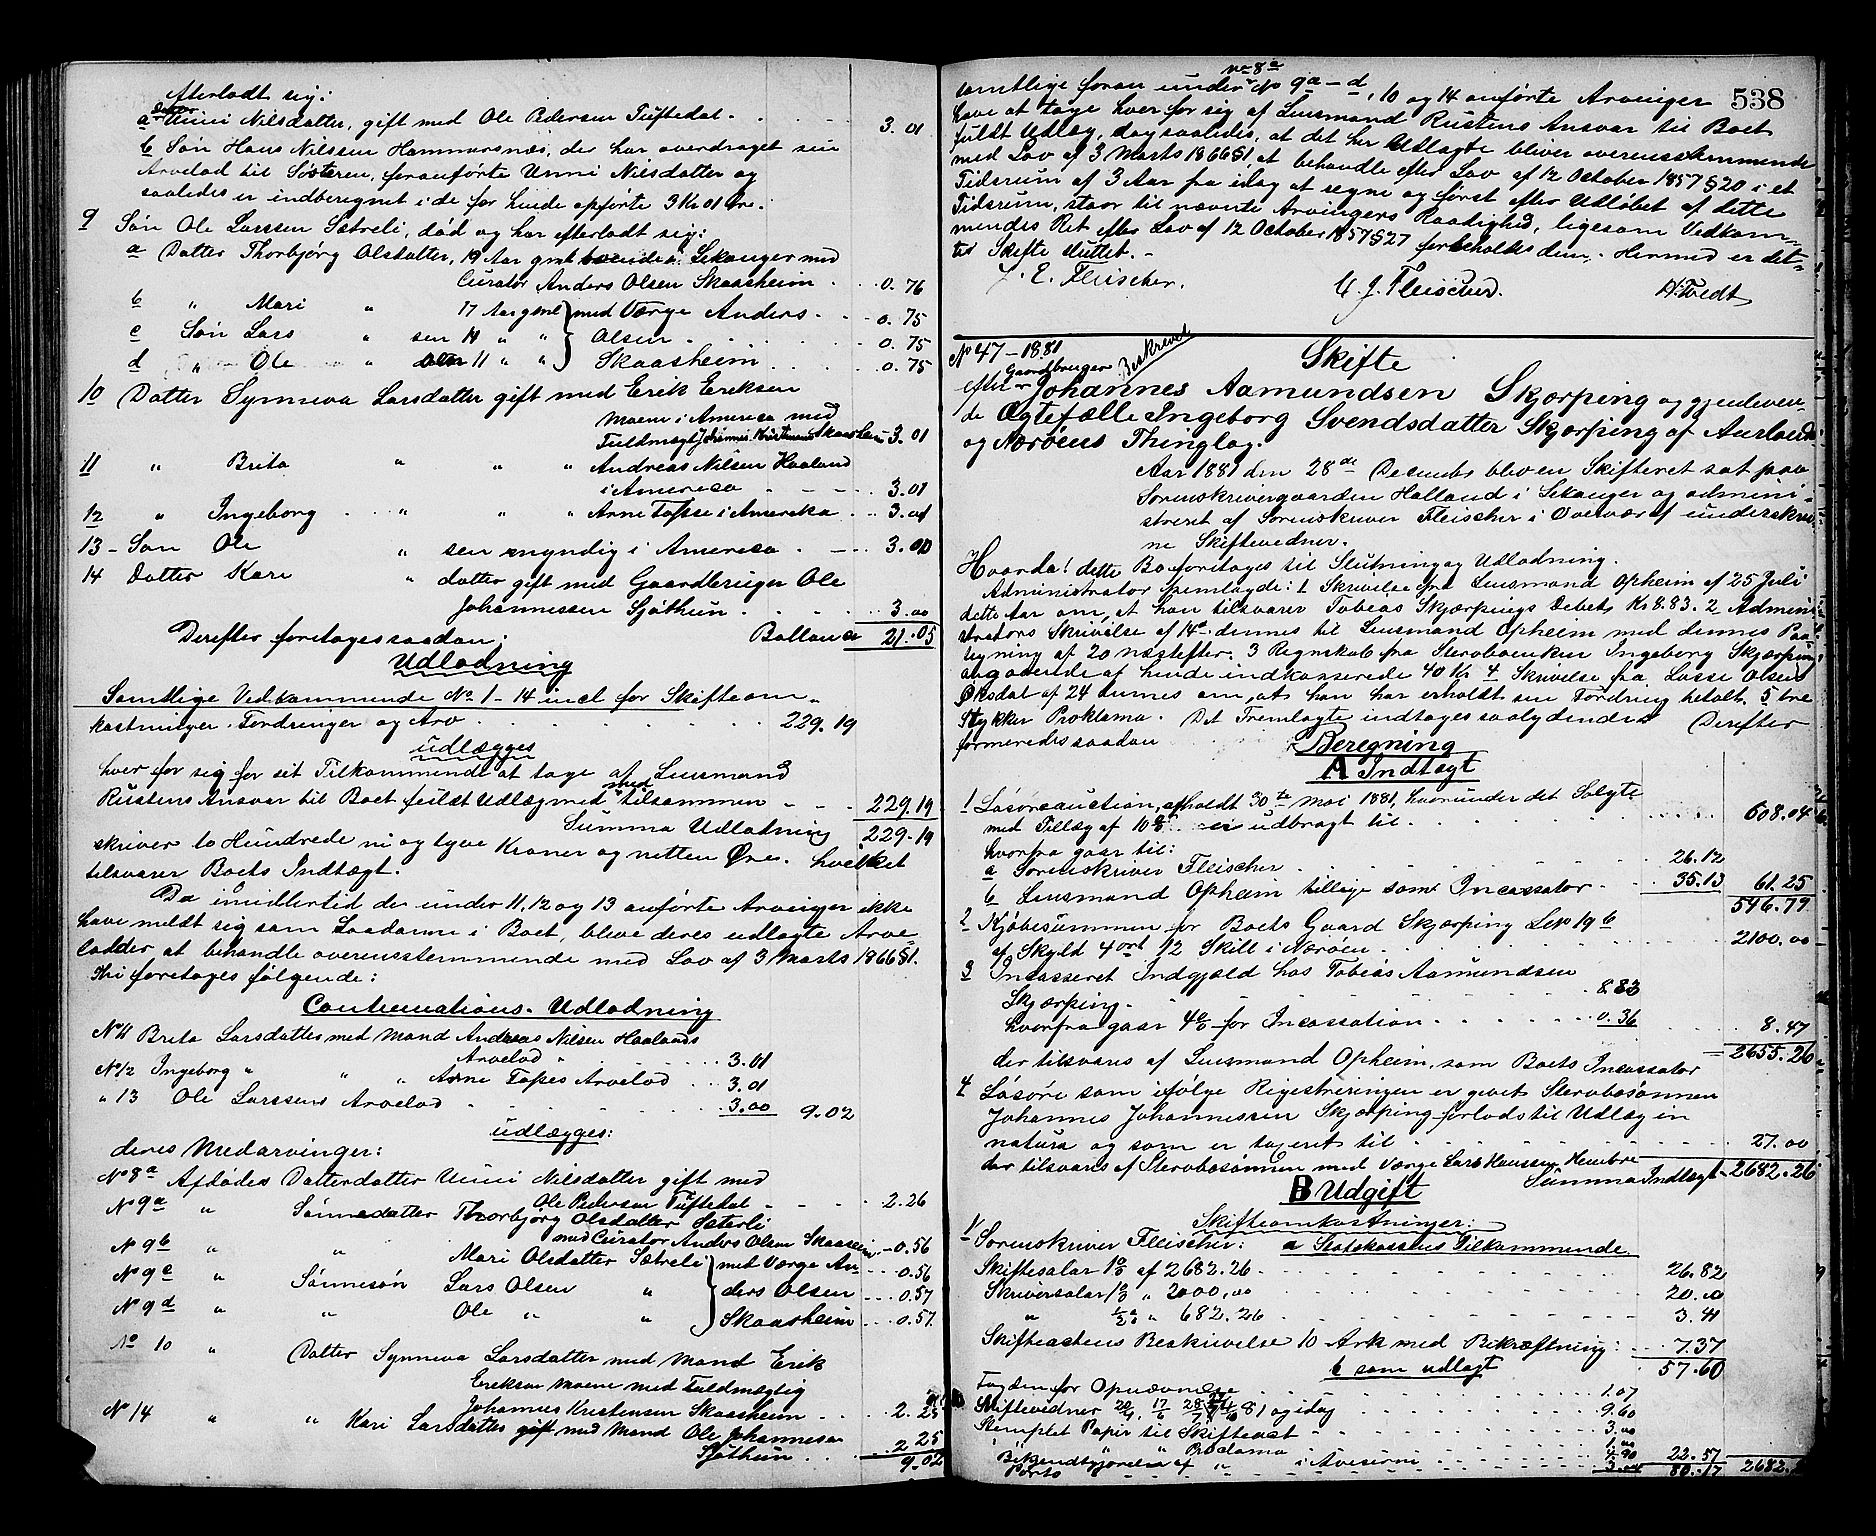 efterladt sig:
a Datter Unni Nilsdatter, gift med Ole Pedersen Tuftedal . 3.01
b Søn Hans Nilssen Hammersnæs, der har overdraget sin
Arvelod til Søsteren, foranførte Unni Nilsdatter og
saaledes er indberegnet i de for hende opførte 3 Kr 01 Øre.
9 Søn Ole Larssen Sætreli, død og har efterladt sig:
a Datter Thorbjørg Olsdatter, 19 Aar gml boende i Lekanger med
Curator Anders Olsen Skaasheim . 0.76
b " Mari " 17 Aar gml med Værge Anders . 0.75
c Søn Lars " sen 14 " " Olsen . 0.75
d " Ole " 11 " " Skaasheim . 0.75
10 Datter Synneva Larsdatter gift med Erik Eriksen
Moene i America med
Fuldmægt Johannes Kristensen Skaasheim 3.01
11 " Brita " " " Andreas Nilsen Haaland
i America 3.01
12 " Ingeborg " " " Arne Fosse i Amerika . 3.01
13 - Søn Ole " sen myndig i America . 3.00
14 Datter Kari " datter gift med Gaardbruger Ole
Johannessen Sjøthun . 3.00
Derefter foretages saadan: Ballance 21.05
Udlodning
Samtlige Vedkommende No 1 - 14 incl for Skifteom-
kostninger. Fordringer og Arv 229.19
udlægges
hver for sig for sit Tilkommende at tage af Lensmand
Rustens Ansvar til Boet fuldt Udlæg med tilsammen 229.19
Summa Udlodning 229.19
skriver to Hundrede ni og tyve Kroner og nitten Øre. hvilket
tilsvarer Boets Indtægt.
Da imidlertid de under 11, 12 og 13 anførte Arvinger ikke
have meldt sig som Saadanne i Boet, blive deres udlagte Arve
lodder at behandle overensstemmende med Lov af 3 Marts 1866 § 1.
Thi foretages følgende:
Continuations-Udlodning
No 11 Brita Larsdatter med Mand Andreas Nilsen Haalands
Arvelod " 3.01
No 12 Ingeborg " " " Arne Fosses Arvelod 3.01
" 13 Ole Larssens Arvelod 3.00 9.02
udlægges:
deres Medarvinger:
No 8a Afdødes Datterdatter Unni Nilsdatter gift med
Ole Pedersen Tuftedal 2.26
No 9a " Sønnedatter Thorbjørg Olsdatter Sæterli
med Curator Anders Olsen Skaasheim 0.56
No 9b " " Mari Olsdatter Sætreli med Værge An- 0.56
No 9c " Sønnesøn Lars Olsen " ders Olsen 0.57
No 9d " " Ole " " Skaasheim 0.57
No 10 " Datter Synneva Larsdatter med Mand Erik
Eriksen Moene med Fuldmægtig
Johannes Kristensen Skaasheim 2.25
No 14 " " Kari Larsdatter gift med Mand Ole Johannesen
Sjøthun 2.25
9.02
538
samtlige foran under No 8a No 9a - d, 10 og 14 anførte Arvinger
have at tage hver for sig af Lensmand Rustens Ansvar til Boet
fuldt Udlæg, dog saaledes, at det her Udlagte bliver overensstemmende
med Lov af 3 Marts 1866 § 1, at behandle efter Lov af 12 October 1857 § 20 i et
Tidsrum af 3 Aar fra idag at regne og først efter Udløbet af dette
Tidsrum, staar til nævnte Arvingers Raadighed, ligesom Vedkom-
mendes Ret efter Lov af 12 October 1857 § 27 forbeholdes dem. Hermed er det-
te Skifte sluttet. -
J. E. Fleischer. C. J. Fleischer. H. Tvedt
No 47 - 1881 Beskrevet Skifte
efter Gaardbruger Johannes Aamundsen Skjærping og gjenleven-
de Ægtefælle Ingeborg Svendsdatter Skjærping af Aurlands
og Nærøens Thinglag.
Aar 1881 den 28de December blev en Skifteret sat paa
Sorenskrivergaarden Halland i Lekanger og admini-
streret af Sorenskriver Fleischer i Overvær af underskrev-
ne Skiftevidner.
Hvorda! dette Bo foretages til Slutning og Udlodning.
Administrator fremlagde: 1 Skrivelse fra Lensmand Opheim af 25 Juli
dette Aar om, at han tilsvarer Tobias Skjærpings Debet, Kr 8.83. 2 Admini-
strators Skrivelse af 14de dennes til Lensmand Opheim med dennes Paa-
tegning af 20 næstefter. 3 Regnskab fra Stervboenken Ingeborg Skjærping
angaaende af hende indkasserede 40 Kr 4 Skrivelse fra Lasse Olsen
Øksdal af 24 dennes om, at han har erholdt sin Fordring betalt. 5 tre
Stykker Proklama. Det Fremlagte indtages saalydende: Derefter
formeredes saadan Beregning
A Indtægt
1 Løsøreauction, afholdt 30te Mai 1881, hvorunder det Solgte
med Tillæg af 10% udbragt til 608.04
hvorfra gaar til:
a Sorenskriver Fleischer 26.12
b Lensmand Opheim tillige som Incassator 35.13 61.25
546.79
2 Kjøbesummen for Boets Gaard Skjærping LNo 19 b
af Skyld 4 ort 12 Skill i Nærøen 2100.00
3 Incasseret Indgjæld hos Tobias Aamundsen
Skjærping 8.83
hvorfra gaar 4% for Incassation 0.36 8.47
der tilsvares af Lensmand Opheim, som Boets Incassator 2655.26
4 Løsøre som ifølge Registreringen er givet Stervbosønnen
Johannes Johannessen Skjærping forlods til Udlæg in
natura og som er taxeret til 27.00
der tilsvares af Stervbosønnen med Værge Lars Hanssen Summa Indtægt 2682.26
B Udgift
Skifteomkostninger:
1 Sorenskriver Fleischer: a Statskassens Tilkommende.
Skiftesalar 1% af 2682.26 26.82
Skriversalar 1% " 2000,00 20.00
" ½% " 682.26 3.41
Skifteactens Beskrivelse 10 Ark med Bekræftning: 7.37
b som udlagt 57.60
Lagden for Opnævnelse 1.07
Skiftevidner 81 og idag 9.60
Stemplet Papir til Skifteact 3.00
" " " Proclama 1.00
Bekjendtgjørelse af " i Aviserne 4.90 22.57
Porto 3.00 80.17 2682.